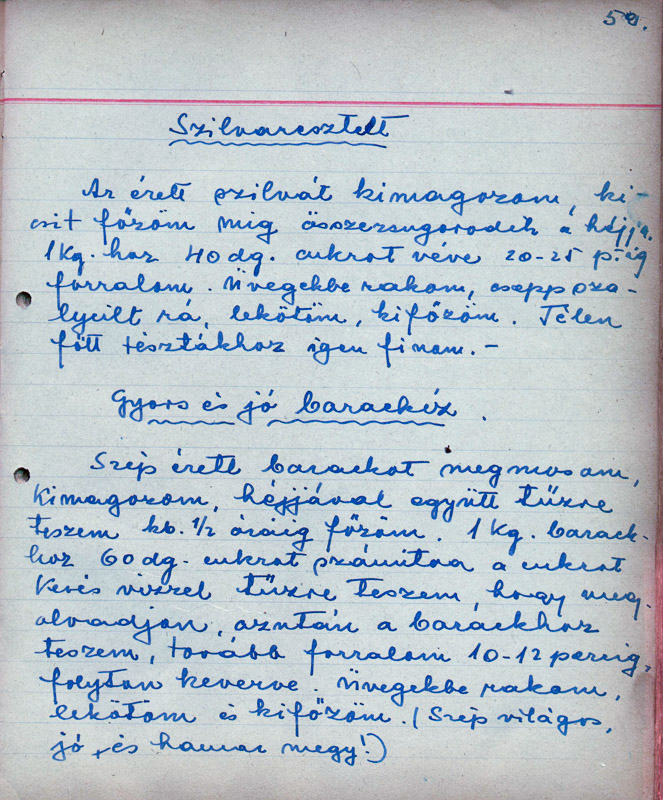 52.
Szilvaresztelt
Az érett szilvát kimagozom, ki-
csit főzöm míg összezsugorodik a héjja.
1 Kg. hoz 40 dg. cukrot véve 20-25 p-ig
forralom. Üvegekbe rakom, csepp sza-
lycilt rá, lekötöm, kifőzöm. Télen
főtt tésztákhoz igen finom. –
Gyors és jó barackíz.
Szép érett barackot megmosom,
Kimagozom, héjjával együtt tűzre
teszem kb. 1/2 óráig főzöm. 1 Kg. barack-
hoz 60 dg. cukrot számítva a cukrot
Kevés vízzel tűzre teszem, hogy meg-
olvadjon, azután a barackhoz
teszem, tovább forralom 10-12 percig,
folyton keverve. Üvegekbe rakom,
lekötöm és kifőzöm. (Szép világos,
jó, és hamar megy!)